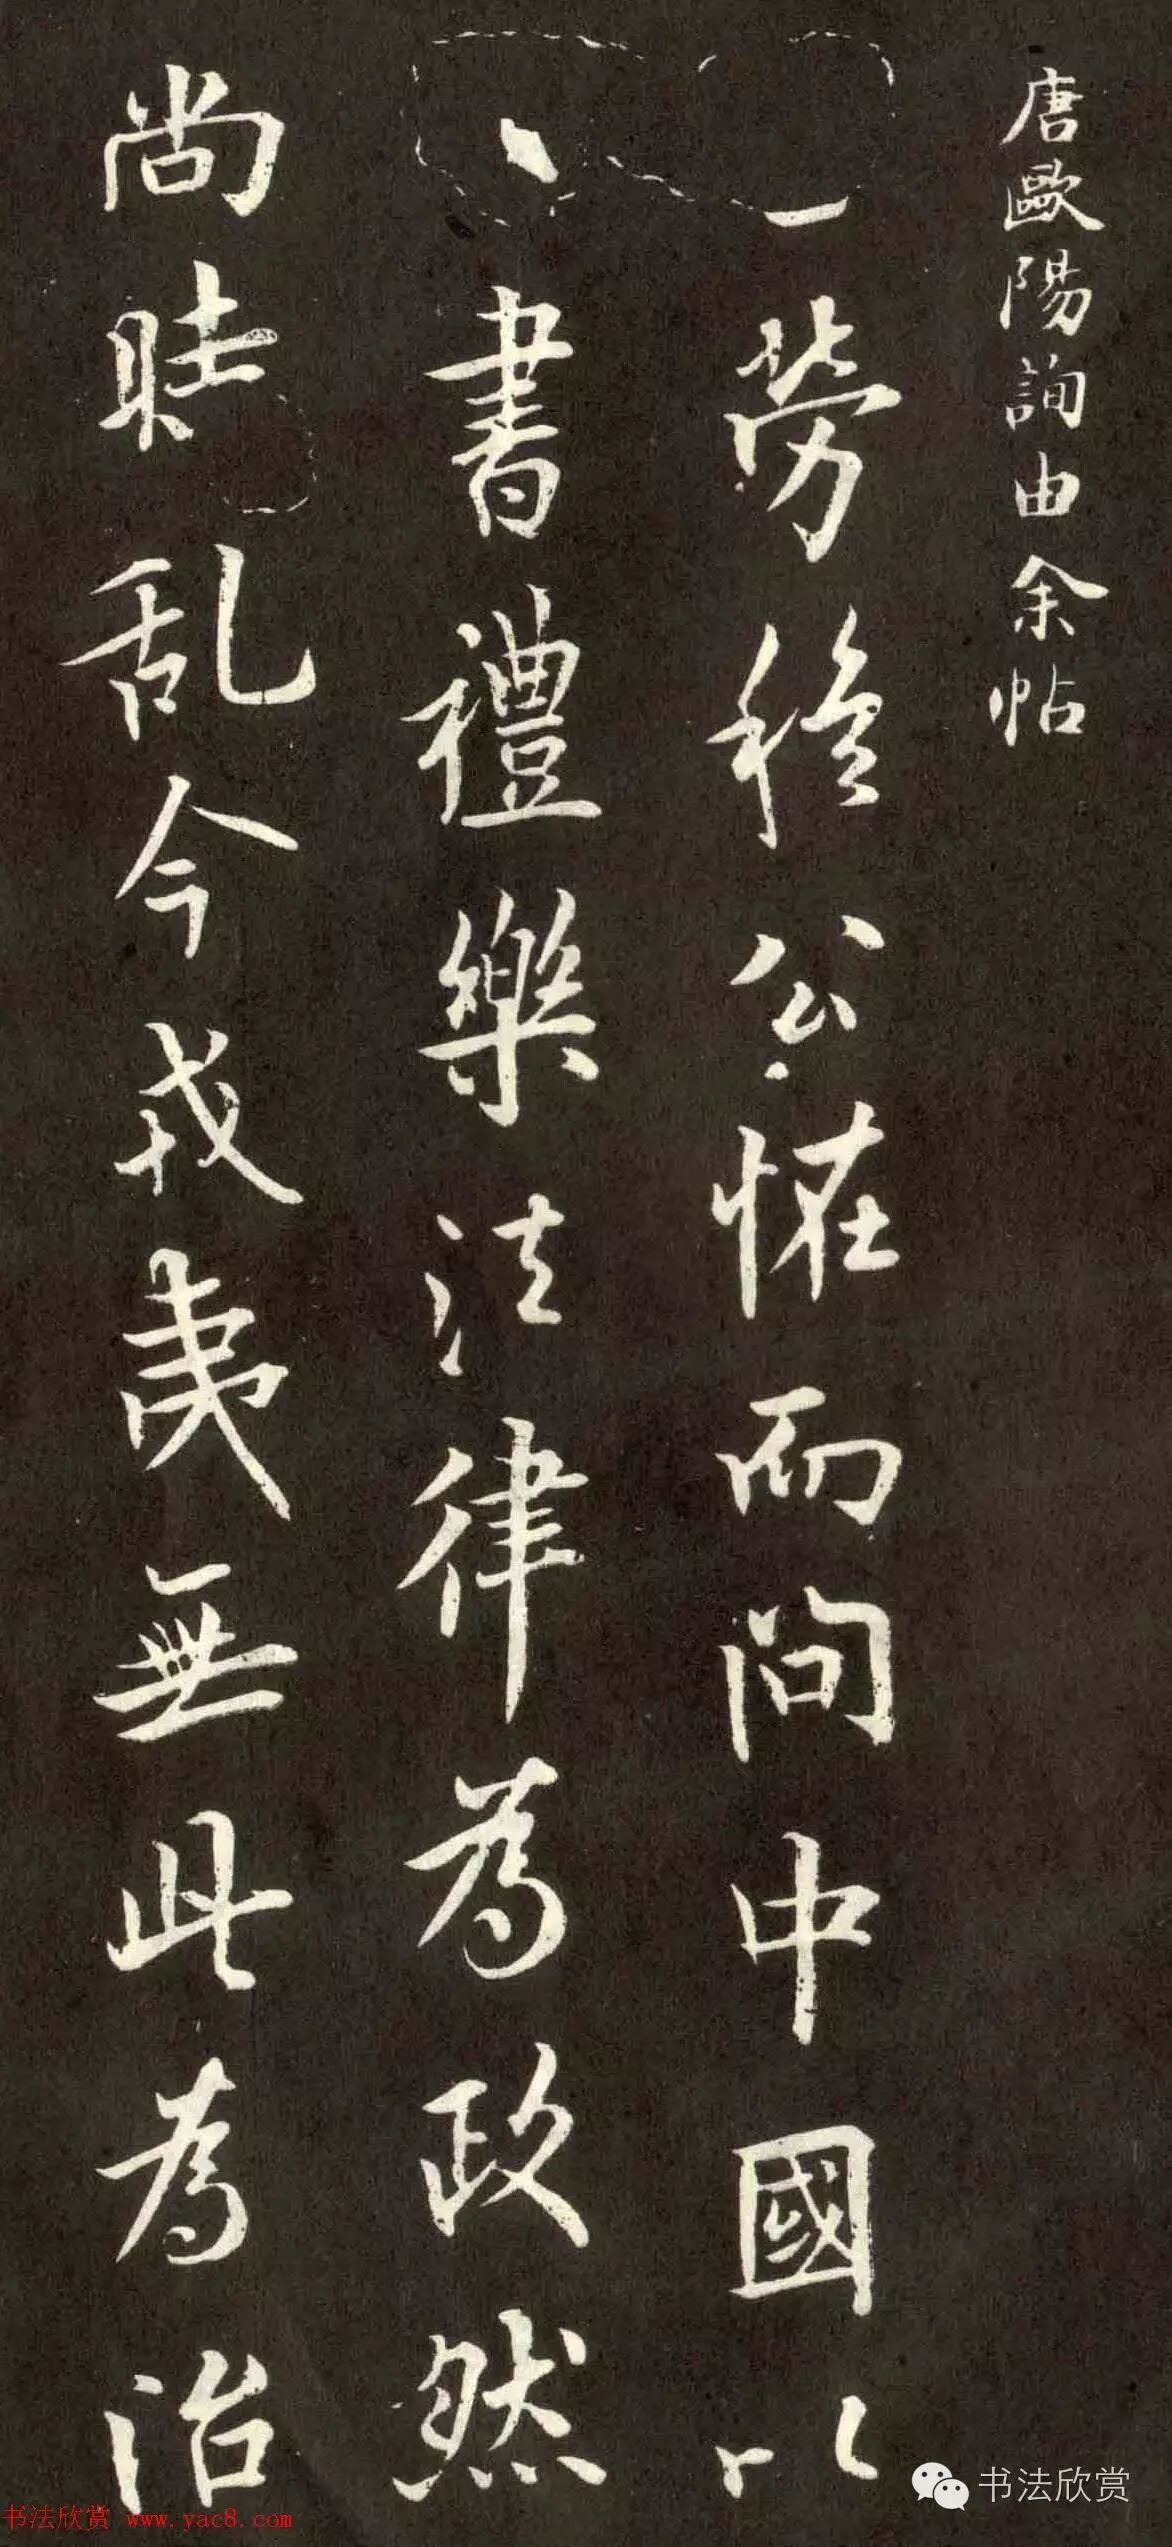 唐歐陽詢由余帖
一勞穆公怪而問中國以
書禮樂法律為政然
尚時乱今戎夷無此為治
书法欣赏
书法欣赏 www.yac8.com